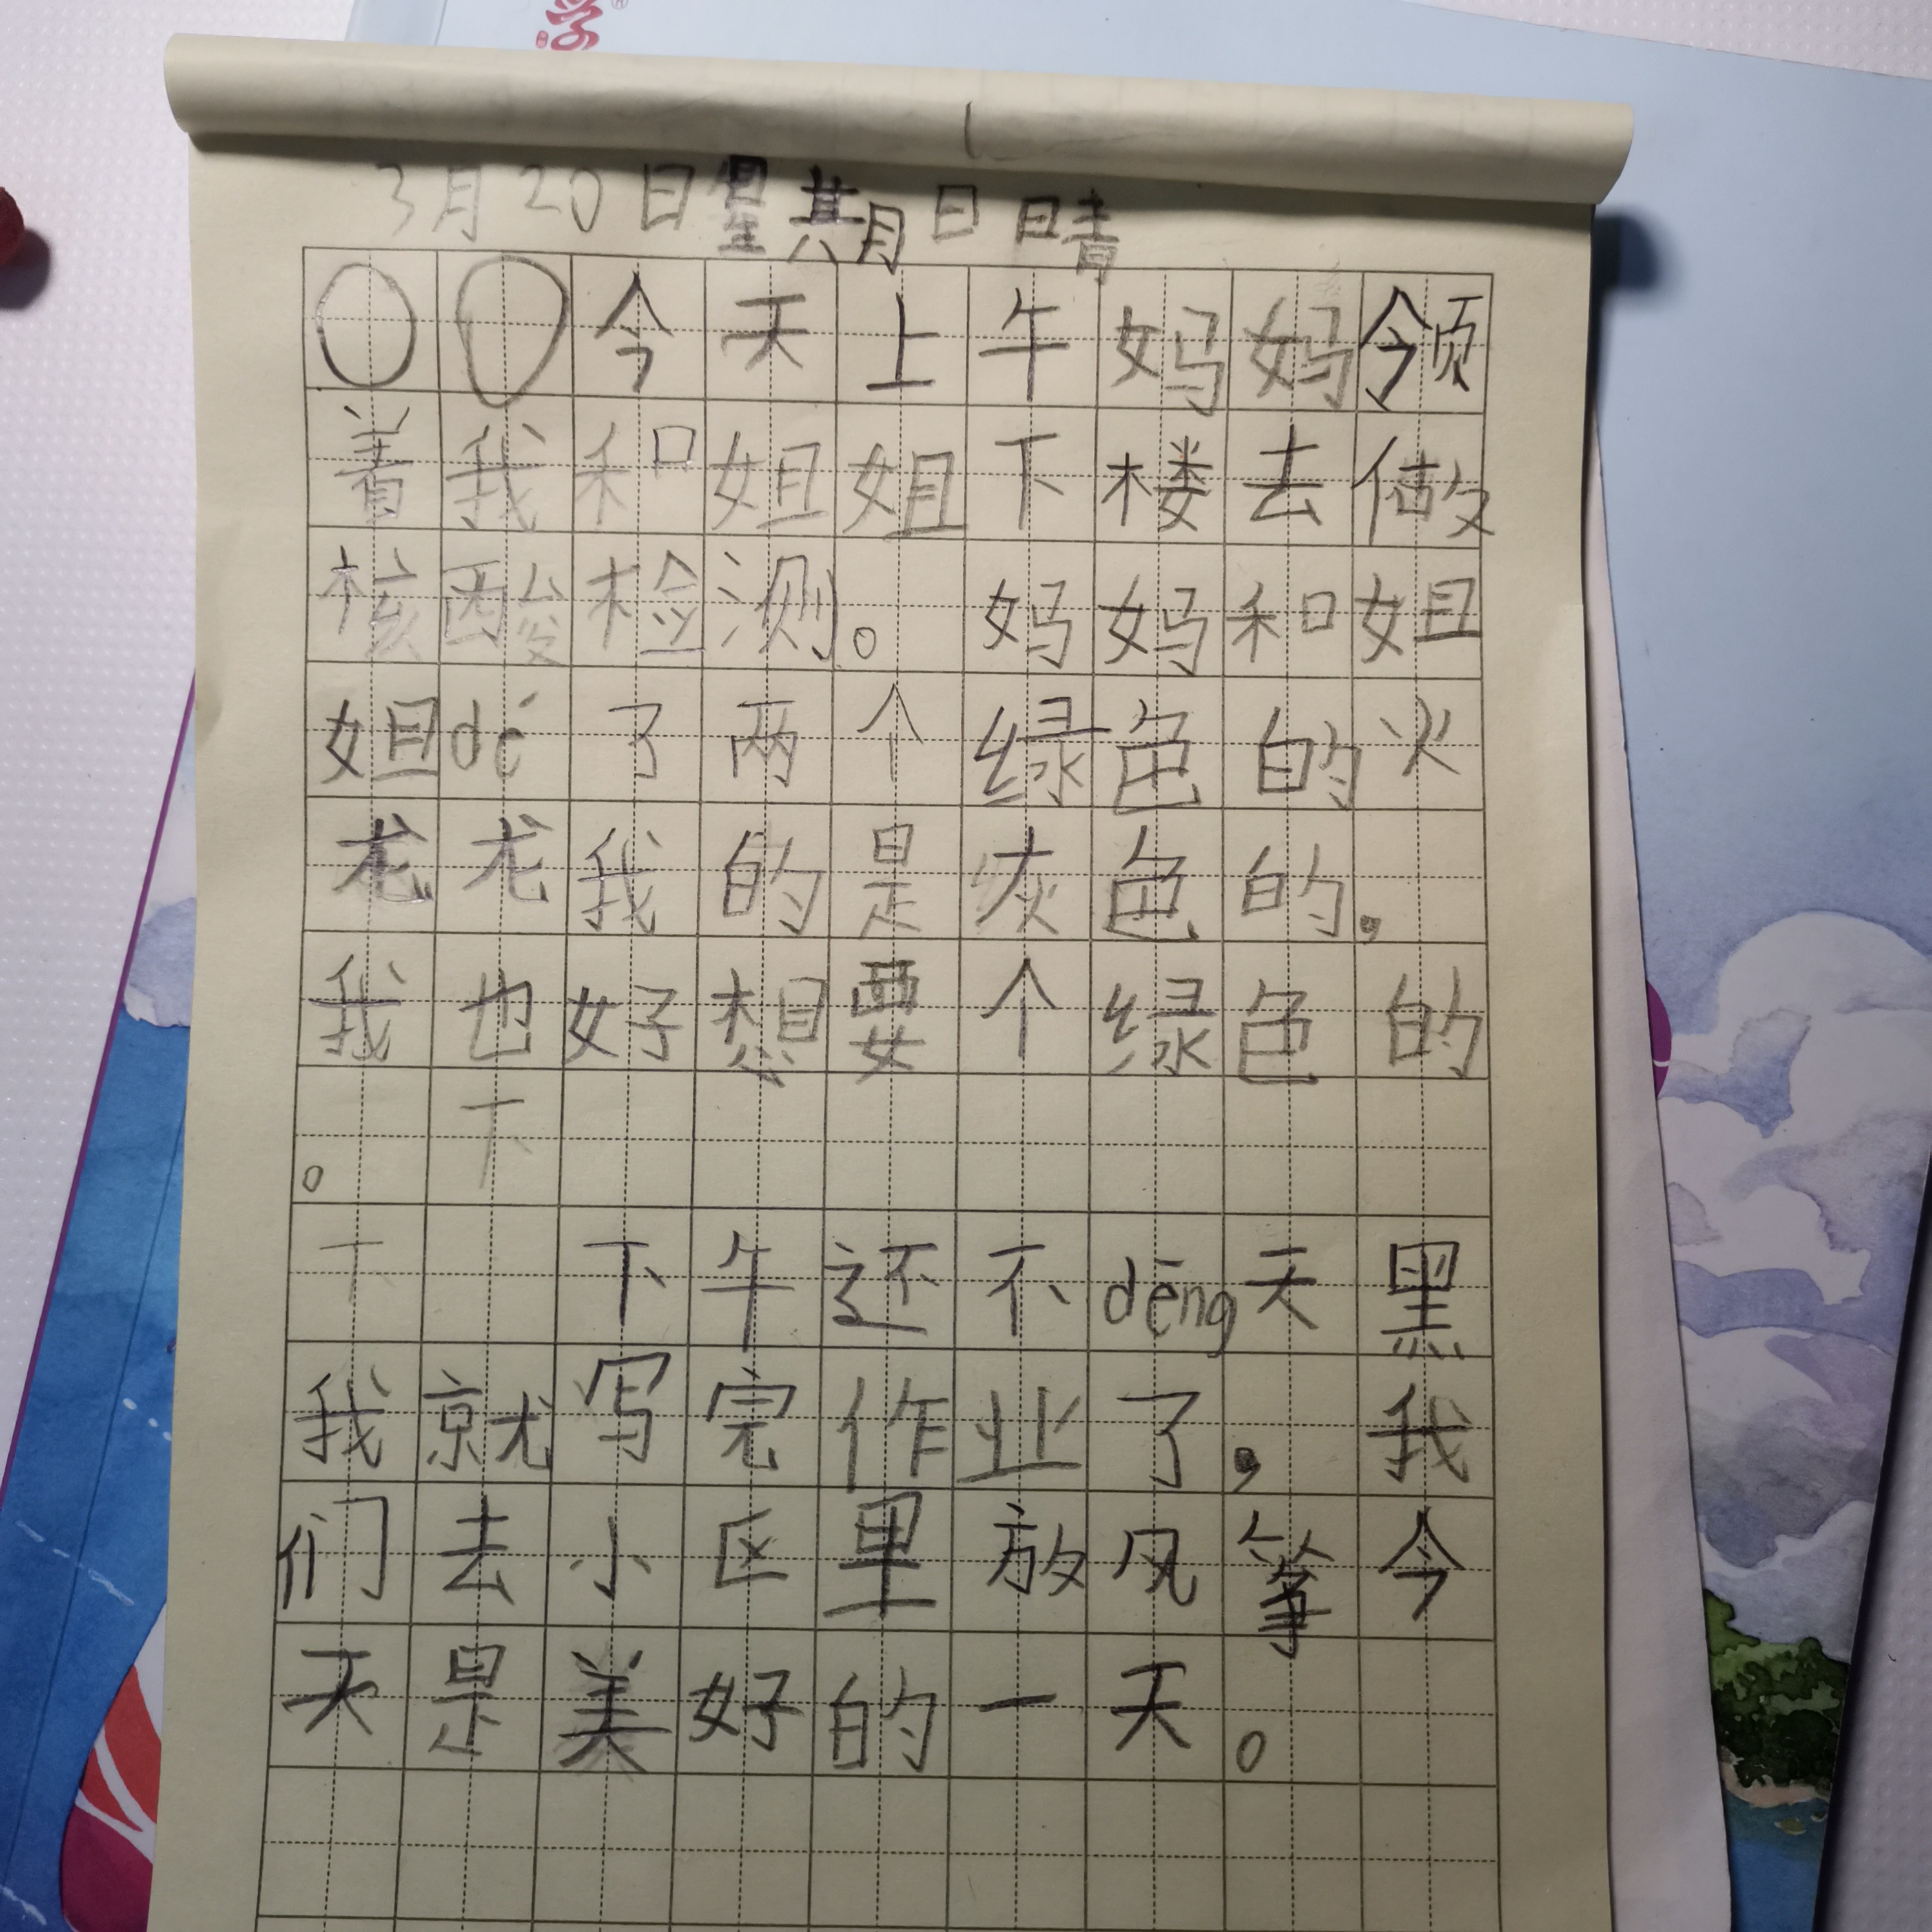 学
3月20日星期日晴
〇〇今天上午妈妈领
着我和姐姐下楼去做
核酸检测。妈妈和姐
姐dé了两个绿色的火
龙龙我的是灰色的,
我也好想要个绿色的
。下
下 下午还不děng天黑
我就写完作业了,我
们去小区里放风筝今
天是美好的一天。